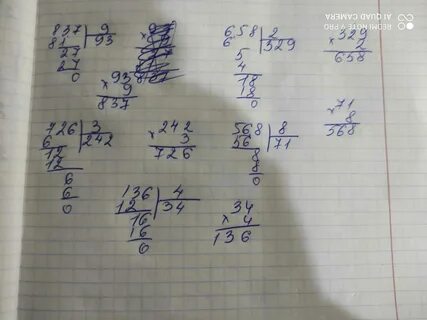 837 | 9
81 | 93
27
27
0
× 93
9
837
658 | 2
6 | 329
5
4
18
8
0
× 329
2
658
726 | 3
6 | 242
12
12
6
6
0
× 242
3
726
568 | 8
56 | 71
8
8
0
× 71
8
568
136 | 4
12 | 34
16
16
0
34
× 4
136
REDMI NOTE 9 PRO
AI QUAD CAMERA